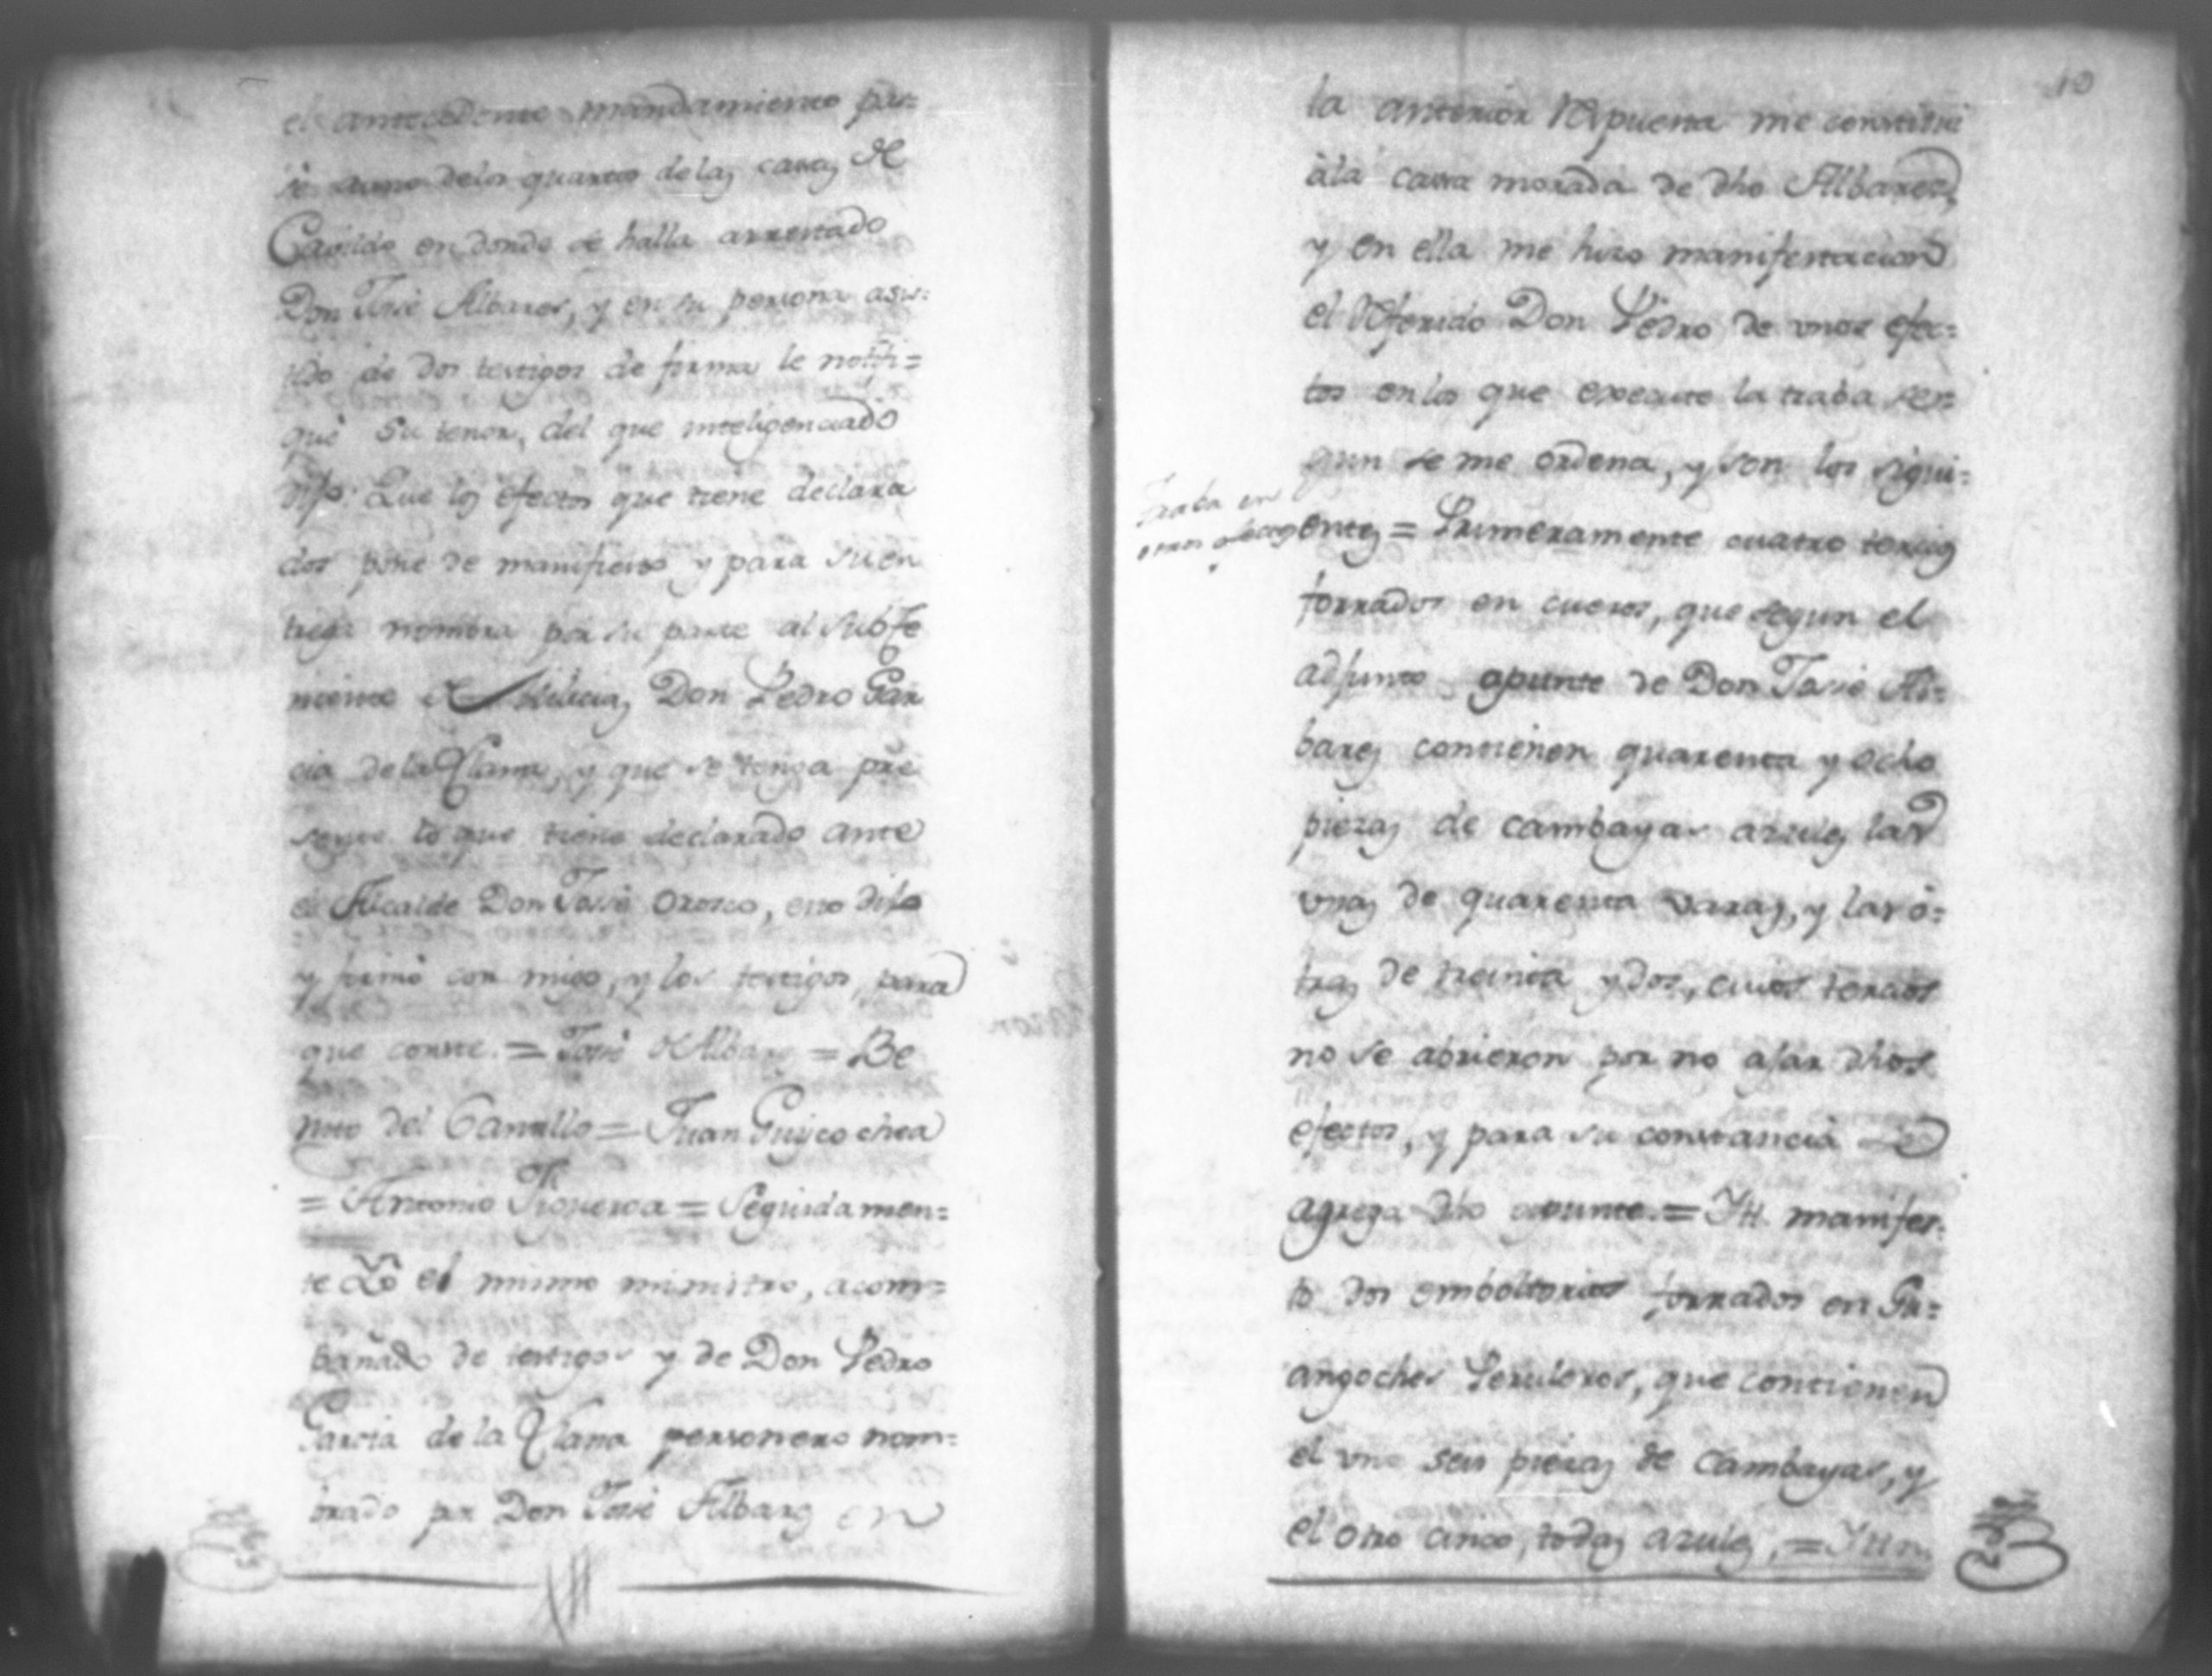 el antecedente mandamiento pa=
sé a uno delos quartos delas casas de
Cavildo en donde se halla arrestado
Don José Albares, y en su persona asis=
tido de dos testigos de firma le notifi=
qué su tenor, del que inteligenciado
dijo: Que los efectos que tiene declara
dos pone de manifiesto y para su en
trega nombra por su parte al subte
niente de Milicias Don Pedro Gar
cia dela Llana, y que se tenga pre
sente lo que tiene declarado ante
el Alcalde Don José Orosco, esto dijo
y firmó con migo, y los testigos, para
que conste. = José de Albares = Be
nito del Carrillo = Juan Guycochea
= Antonio Figueroa = Seguidamen=
te Yo el mismo ministro, acom=
pañado de testigos y de Don Pedro
Garcia de la Llana personero nom=
brado por Don José Albares en
10
la anterior Respuesta me constitui
à la casa morada de dho Albares,
y en ella me hizo manifestacion
el Referido Don Pedro de unos efec=
tos en los que execute la traba se=
gun se me ordena, y son los sigui=
Traba en
unos efectos
entes = Primeramente quatro tercios
forrados en cueros, que segun el
adjunto apunte de Don José Al=
bares contienen quarenta y ocho
piezas de cambayas azules las
unas de quarenta varas, y las o=
tras de treinta y dos, cuios tercios
no se abrieron por no ajar dhos
efectos, y para su constancia se
agrega dho apunte. = Yt. manifes=
tó dos emboltorios forrados en Gu=
angoches Peruleros, que contienen
el uno seis piezas de cambayas, y
el otro cinco, todas azules, = Y un